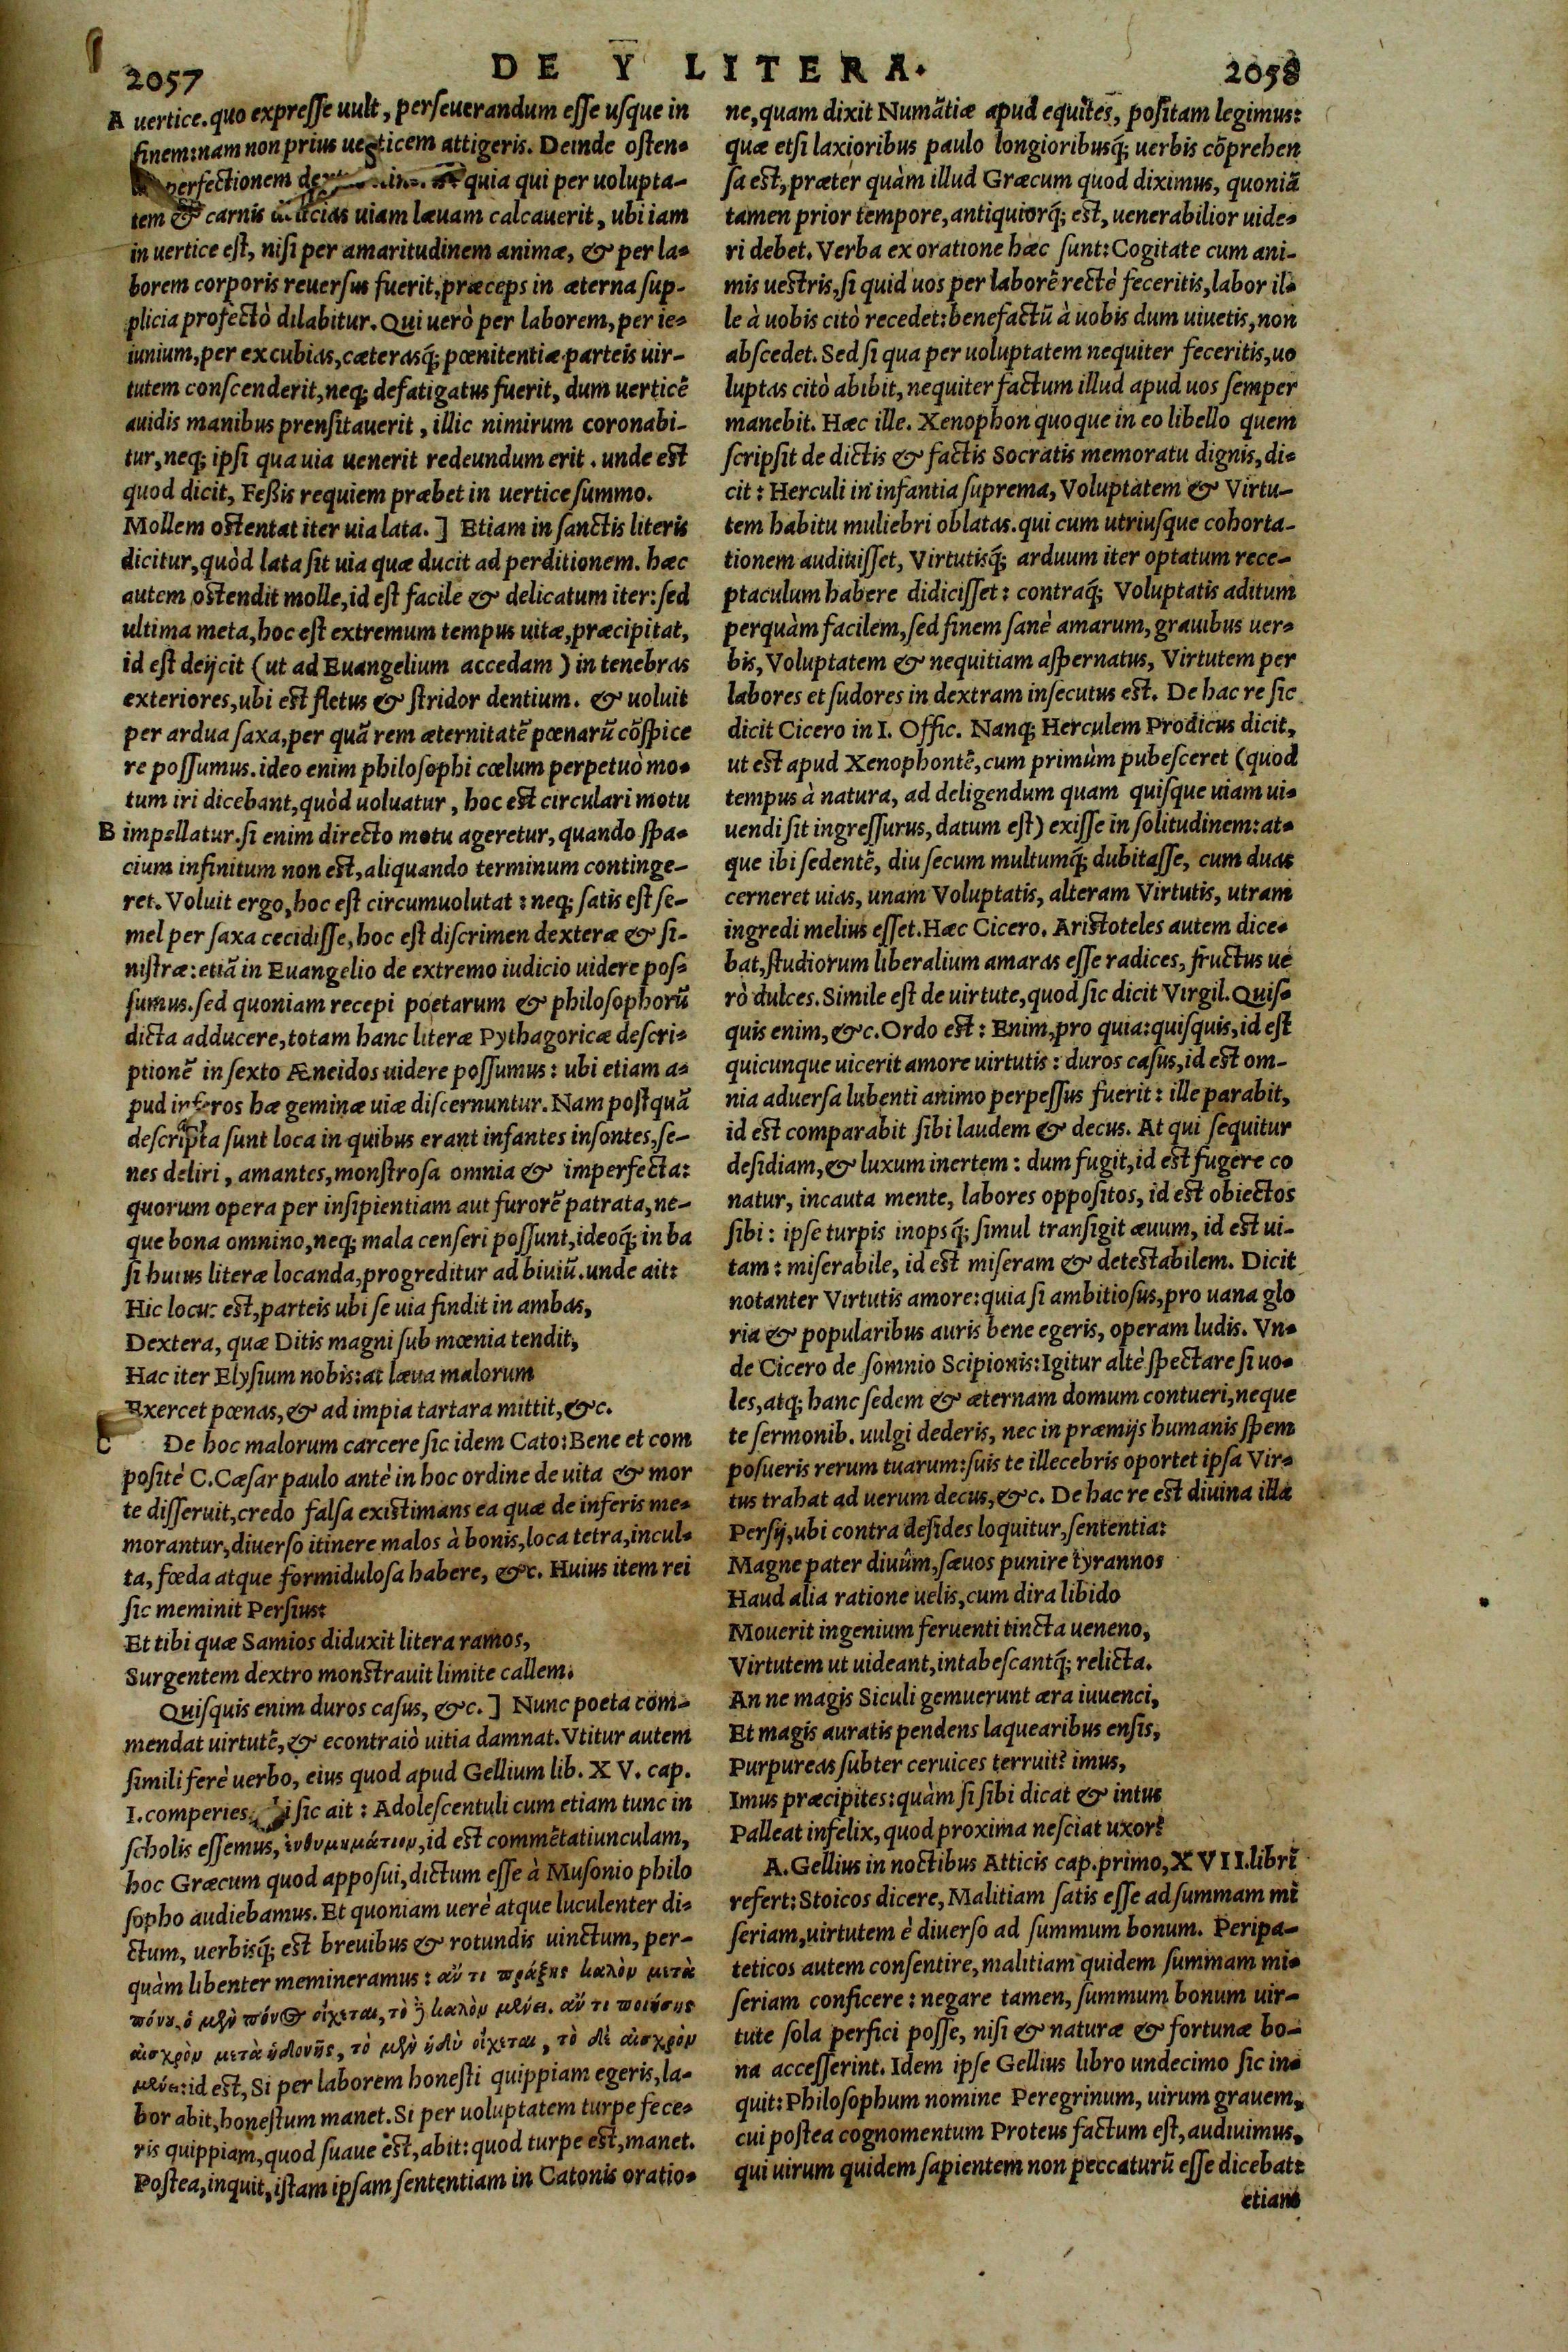 2057
DE Y LITERA.
2058
A uertice. quo expresse uult, perseuerandum esse usque in
finem: nam non prius uerticem attigeris. Deinde osten-
perfectionem quia qui per uolupta-
tem & carnis uiam læuam calcauerit, ubi iam
in uertice est, nisi per amaritudinem animæ, & per la-
borem corporis reuersus fuerit, præceps in æterna sup-
plicia profectò dilabitur. Qui uerò per laborem, per ie-
iunium, per excubias, cæterasq́; pœnitentiæ parteis uir-
tutem conscenderit, neq; defatigatus fuerit, dum uerticẽ
auidis manibus prensitauerit, illic nimirum coronabi-
tur, neq; ipsi qua uia uenerit redeundum erit. unde est
quod dicit, Feßis requiem præbet in uertice summo.
Mollem ostentat iter uia lata. ] Etiam in sanctis literis
dicitur, quòd lata sit uia quæ ducit ad perditionem. hæc
autem ostendit molle, id est facile & delicatum iter: sed
ultima meta, hoc est extremum tempus uitæ, præcipitat,
id est deijcit (ut ad Euangelium accedam) in tenebras
exteriores, ubi est fletus & stridor dentium. & uoluit
per ardua saxa, per quã rem æternitatẽ pœnarũ cõspice
re possumus. ideo enim philosophi cœlum perpetuò mo-
tum iri dicebant, quòd uoluatur, hoc est circulari motu
B impellatur. si enim directo motu ageretur, quando spa-
cium infinitum non est, aliquando terminum continge-
ret. Voluit ergo, hoc est circumuolutat: neq; satis est se-
mel per saxa cecidisse, hoc est discrimen dexteræ & si-
nistræ: etiã in Euangelio de extremo iudicio uidere pos-
sumus. sed quoniam recepi poetarum & philosophorũ
dicta adducere, totam hanc literæ Pythagoricæ descri-
ptionẽ in sexto Æneidos uidere possumus: ubi etiam a-
pud inferos hæ geminæ uiæ discernuntur. Nam postquã
descripta sunt loca in quibus erant infantes insontes, se-
nes deliri, amantes, monstrosa omnia & imperfecta:
quorum opera per insipientiam aut furorẽ patrata, ne-
que bona omnino, neq; mala censeri possunt, ideoq́; in ba
si huius literæ locanda, progreditur ad biuiũ. unde ait:
Hic locus est, parteis ubi se uia findit in ambas,
Dextera, quæ Ditis magni sub mœnia tendit,
Hac iter Elysium nobis: at læua malorum
Exercet pœnas, & ad impia tartara mittit, &c.
C De hoc malorum carcere sic idem Cato: Bene et com
positè C. Cæsar paulo antè in hoc ordine de uita & mor
te disseruit, credo falsa existimans ea quæ de inferis me-
morantur, diuerso itinere malos à bonis, loca tetra, incul-
ta, fœda atque formidulosa habere, &c. Huius item rei
sic meminit Persius:
Et tibi quæ Samios diduxit litera ramos,
Surgentem dextro monstrauit limite callem.
Quisquis enim duros casus, &c. ] Nunc poeta com-
mendat uirtutẽ, & econtraiò uitia damnat. Vtitur autem
simili ferè uerbo, eius quod apud Gellium lib. XV. cap.
I. comperies. sic ait: Adolescentuli cum etiam tunc in
scholis essemus, ἐνθυμημάτιον, id est commẽtatiunculam,
hoc Græcum quod apposui, dictum esse à Musonio philo
sopho audiebamus. Et quoniam uerè atque luculenter di-
ctum, uerbisq́; est breuibus & rotundis uinctum, per-
quàm libenter memineramus: ἄν τι πράξῃς καλὸν μετὰ
πόνου, ὁ μὲν πόνος οἴχεται, τὸ δὲ καλὸν μένει. ἄν τι ποιήσῃς
αἰσχρὸν μετὰ ἡδονῆς, τὸ μὲν ἡδὺ οἴχεται, τὸ δὲ αἰσχρὸν
μένει: id est, Si per laborem honesti quippiam egeris, la-
bor abit, honestum manet. Si per uoluptatem turpe fece-
ris quippiam, quod suaue est, abit: quod turpe est, manet.
Postea, inquit, istam ipsam sententiam in Catonis oratio-
ne, quam dixit Numãtiæ apud equites, positam legimus:
quæ etsi laxioribus paulo longioribusq́; uerbis cõprehen
sa est, præter quàm illud Græcum quod diximus, quoniã
tamen prior tempore, antiquiorq́; est, uenerabilior uide-
ri debet. Verba ex oratione hæc sunt: Cogitate cum ani-
mis uestris, si quid uos per laborẽ rectè feceritis, labor il-
le à uobis citò recedet: benefactũ à uobis dum uiuetis, non
abscedet. Sed si qua per uoluptatem nequiter feceritis, uo
luptas citò abibit, nequiter factum illud apud uos semper
manebit. Hæc ille. Xenophon quoque in eo libello quem
scripsit de dictis & factis Socratis memoratu dignis, di-
cit: Herculi in infantia suprema, Voluptatem & Virtu-
tem habitu muliebri oblatas. qui cum utriusque cohorta-
tionem audiuisset, Virtutisq́; arduum iter optatum rece-
ptaculum habere didicisset: contraq́; Voluptatis aditum
perquàm facilem, sed finem sanè amarum, grauibus uer-
bis, Voluptatem & nequitiam aspernatus, Virtutem per
labores et sudores in dextram insecutus est. De hac re sic
dicit Cicero in I. Offic. Nanq; Herculem Prodicus dicit,
ut est apud Xenophontẽ, cum primùm pubesceret (quod
tempus à natura, ad deligendum quam quisque uiam ui-
uendi sit ingressurus, datum est) exisse in solitudinem: at-
que ibi sedentẽ, diu secum multumq́; dubitasse, cum duas
cerneret uias, unam Voluptatis, alteram Virtutis, utram
ingredi melius esset. Hæc Cicero. Aristoteles autem dice-
bat, studiorum liberalium amaras esse radices, fructus ue
rò dulces. Simile est de uirtute, quod sic dicit Virgil. Quis-
quis enim, &c. Ordo est: Enim, pro quia: quisquis, id est
quicunque uicerit amore uirtutis: duros casus, id est om-
nia aduersa lubenti animo perpessus fuerit: ille parabit,
id est comparabit sibi laudem & decus. At qui sequitur
desidiam, & luxum inertem: dum fugit, id est fugere co
natur, incauta mente, labores oppositos, id est obiectos
sibi: ipse turpis inopsq́; simul transigit æuum, id est ui-
tam: miserabile, id est miseram & detestabilem. Dicit
notanter Virtutis amore: quia si ambitiosus, pro uana glo
ria & popularibus auris bene egeris, operam ludis. Vn-
de Cicero de somnio Scipionis: Igitur altè spectare si uo-
les, atq; hanc sedem & æternam domum contueri, neque
te sermonib. uulgi dederis, nec in præmijs humanis spem
posueris rerum tuarum: suis te illecebris oportet ipsa Vir-
tus trahat ad uerum decus, &c. De hac re est diuina illa
Persij, ubi contra desides loquitur, sententia:
Magne pater diuûm, sæuos punire tyrannos
Haud alia ratione uelis, cum dira libido
Mouerit ingenium feruenti tincta ueneno,
Virtutem ut uideant, intabescantq́; relicta.
An ne magis Siculi gemuerunt æra iuuenci,
Et magis auratis pendens laquearibus ensis,
Purpureas subter ceruices terruit? imus,
Imus præcipites: quàm si sibi dicat & intus
Palleat infelix, quod proxima nesciat uxor?
A. Gellius in noctibus Atticis cap. primo, XVII. libri
refert: Stoicos dicere, Malitiam satis esse ad summam mi
seriam, uirtutem è diuerso ad summum bonum. Peripa-
teticos autem consentire, malitiam quidem summam mi-
seriam conficere: negare tamen, summum bonum uir-
tute sola perfici posse, nisi & naturæ & fortunæ bo-
na accesserint. Idem ipse Gellius libro undecimo sic in-
quit: Philosophum nomine Peregrinum, uirum grauem,
cui postea cognomentum Proteus factum est, audiuimus,
qui uirum quidem sapientem non peccaturũ esse dicebat:
etiam